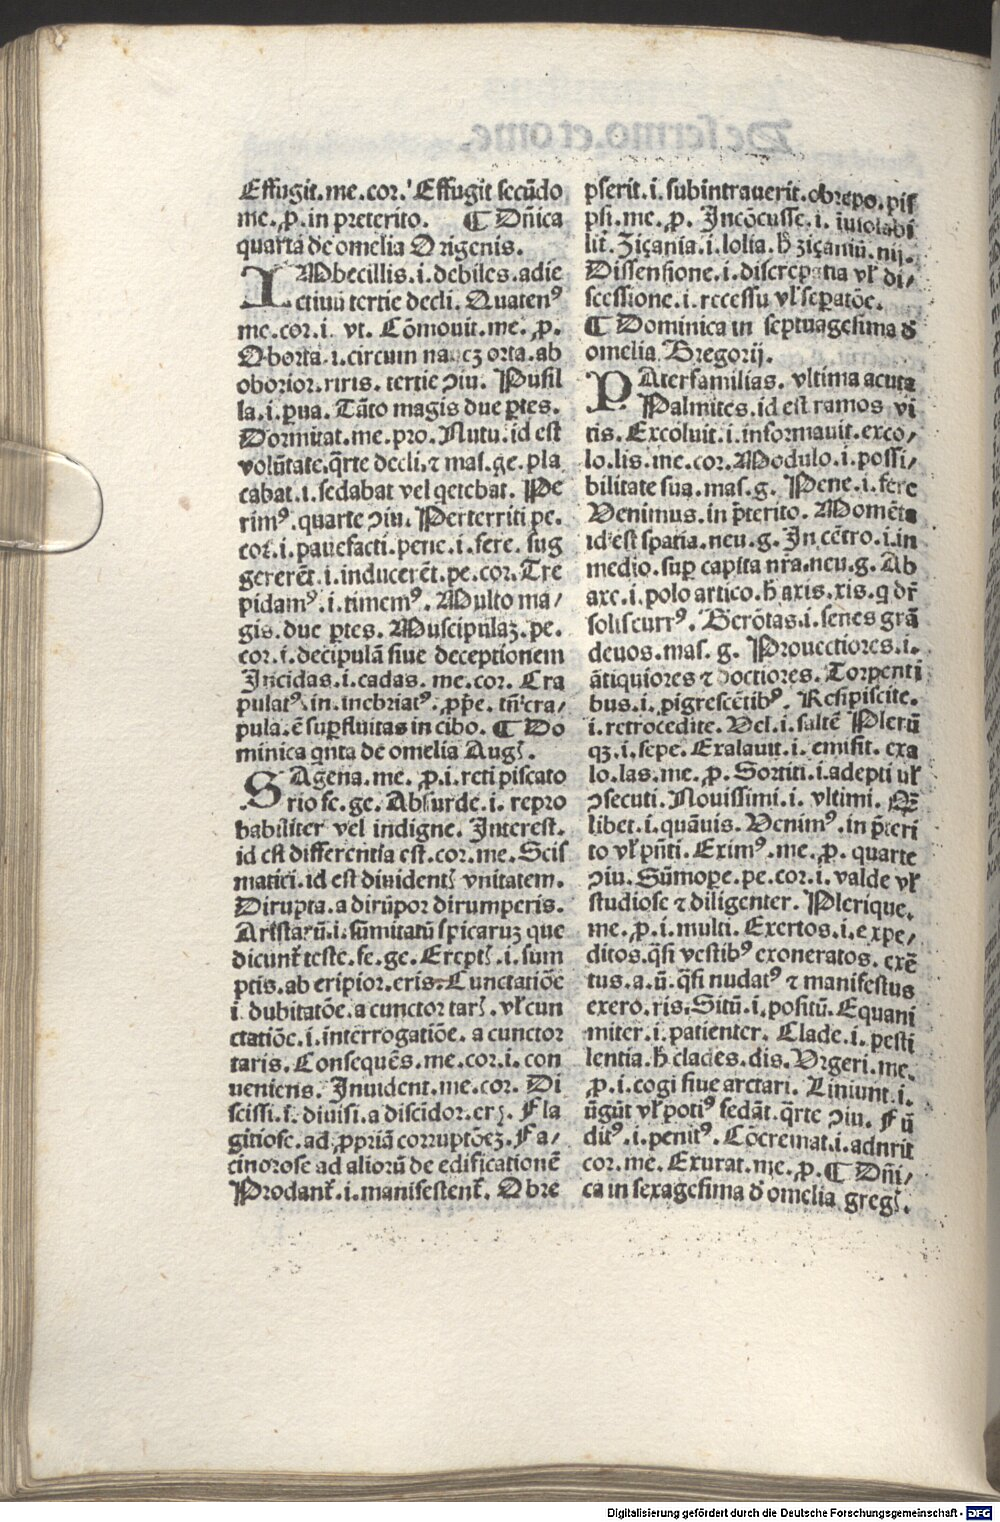 Effugit.me.cor.' Effugit secūdo
me.ꝓ.in preterito. ¶ Dn̄ica
quarta de omelia Origenis.
IMbecillis.i.debiles.adie
ctiuū tertie decli. Quatenꝰ
me.cor.i. vt. Cōmouit.me.ꝓ.
Oborta.i.circum orta.ab
oborior.riris. tertie ↄiu. Pusil
la.i.ꝑua. Tāto magis due ꝑtes.
Dormitat.me.pro. Nutu.id est
volūtate.q̄rte decli.⁊ mas.ge.pla
cabat.i.sedabat vel qetebat. Pe
rimꝰ.quarte ↄiu. Perterriti pe.
cor.i.pauefacti.pene.i.fere. sug
gererēt.i.inducerēt.pe.cor. Tre
pidamꝰ.i.timemꝰ. Multo ma/
gis.due ꝑtes. Muscipulaꝫ.pe.
cor.i.decipulā siue deceptionem
Incidas.i.cadas. me.cor. Cra
pulatꝰ.in.inebriatꝰ.ꝓp̄e. tn̄ cra/
pula.ē suꝑfluitas in cibo. ¶ Do
minica qnta de omelia Augꝭ.
SAgena.me. ꝓ.i.reti piscato
rio fe.ge. Absurde.i. repro
babiliter vel indigne. Interest.
id est differentia est.cor.me. Scis
matici.id est diuidentꝭ vnitatem.
Dirupta.a dirūpor dirumperis.
Aristarū.i.sūmitatū spicaruꝫ que
dicunt᷑ teste.fe.ge. Ereptꝭ.i.sum
ptis.ab eripior.eris. Cunctatiōe
i.dubitatōe.a cunctor tarꝭ.vl̓ cun
ctatiōe.i.interrogatiōe. a cunctor
taris. Consequēs.me.cor.i.con
ueniens. Inuident.me.cor. Di
scissi.i. diuisi.a discidor.erꝭ. Fla
gitiose.ad ꝓpriā corruptōeꝫ. Fa/
cinorose ad aliorū de edificationē
Prodant᷑.i.manifestent᷑. Obre
pserit.i.subintrauerit.obrepo.pis
psi.me.ꝓ. Incōcusse.i. īuiolabi
lit᷑. Ziçania.i.lolia.h̄ ziçaniū.nij.
Dissensione.i.discrepātia vl̓ di/
scessione.i.recessu vl̓ seꝑatōe.
¶ Dominica in septuagesima d̄
omelia Gregorij.
PAterfamilias. vltima acuta
Palmites.id est ramos vi
tis. Excoluit.i.informauit.exco/
lo.lis.me.cor. Modulo.i.possi/
bilitate sua.mas.g. Pene.i.fere
Venimus.in p̄terito. Momēta
id est spatia.neu.g. In cētro.i.in
medio.suꝑ capita nr̄a.neu.g. Ab
axe.i.polo artico.h̄ axis.xis.q dr̄
solis currꝰ. Gerōtas.i.senes grā
deuos.mas. g. Prouectiores.i.
ātiquiores ⁊ doctiores. Torpenti
bus.i.pigrescētibꝰ. Resipiscite.
i.retrocedite. Vel.i.saltē Plerū
qꝫ.i.sepe. Exalauit.i.emisit. exa
lo.las.me.ꝓ. Sortiti.i.adepti vl̓
ↄsecuti. Nouissimi.i. vltimi.
libet.i.quāuis. Venimꝰ.in p̄teri
to vl̓ pn̄ti. Eximꝰ.me.ꝓ. quarte
ↄiu. Sūmoꝑe.pe.cor.i.valde vl̓
studiose ⁊ diligenter. Plerique.
me.ꝓ.i.multi. Exertos.i.expe/
ditos.q̄si vestibꝰ exoneratos. exē
tus.a.ū.q̄si nudatꝰ ⁊ manifestus
exero.ris. Sitū.i.positū. Equani
miter.i.patienter. Clade.i.pesti
lentia.h̄ clades.dis. Vrgeri.me.
ꝓ.i.cogi siue arctari. Liniunt.i.
ūgūt vl̓ potiꝰ sedāt.q̄rte ↄiu. Fū
ditꝰ.i.penitꝰ. Cōcremat.i.adurit
cor.me. Exurat.me.ꝓ. ¶ Dn̄i/
ca in sexagesima d̄ omelia gregꝭ.
Digitalisierung gefördert durch die Deutsche Forschungsgemeinschaft - DFG